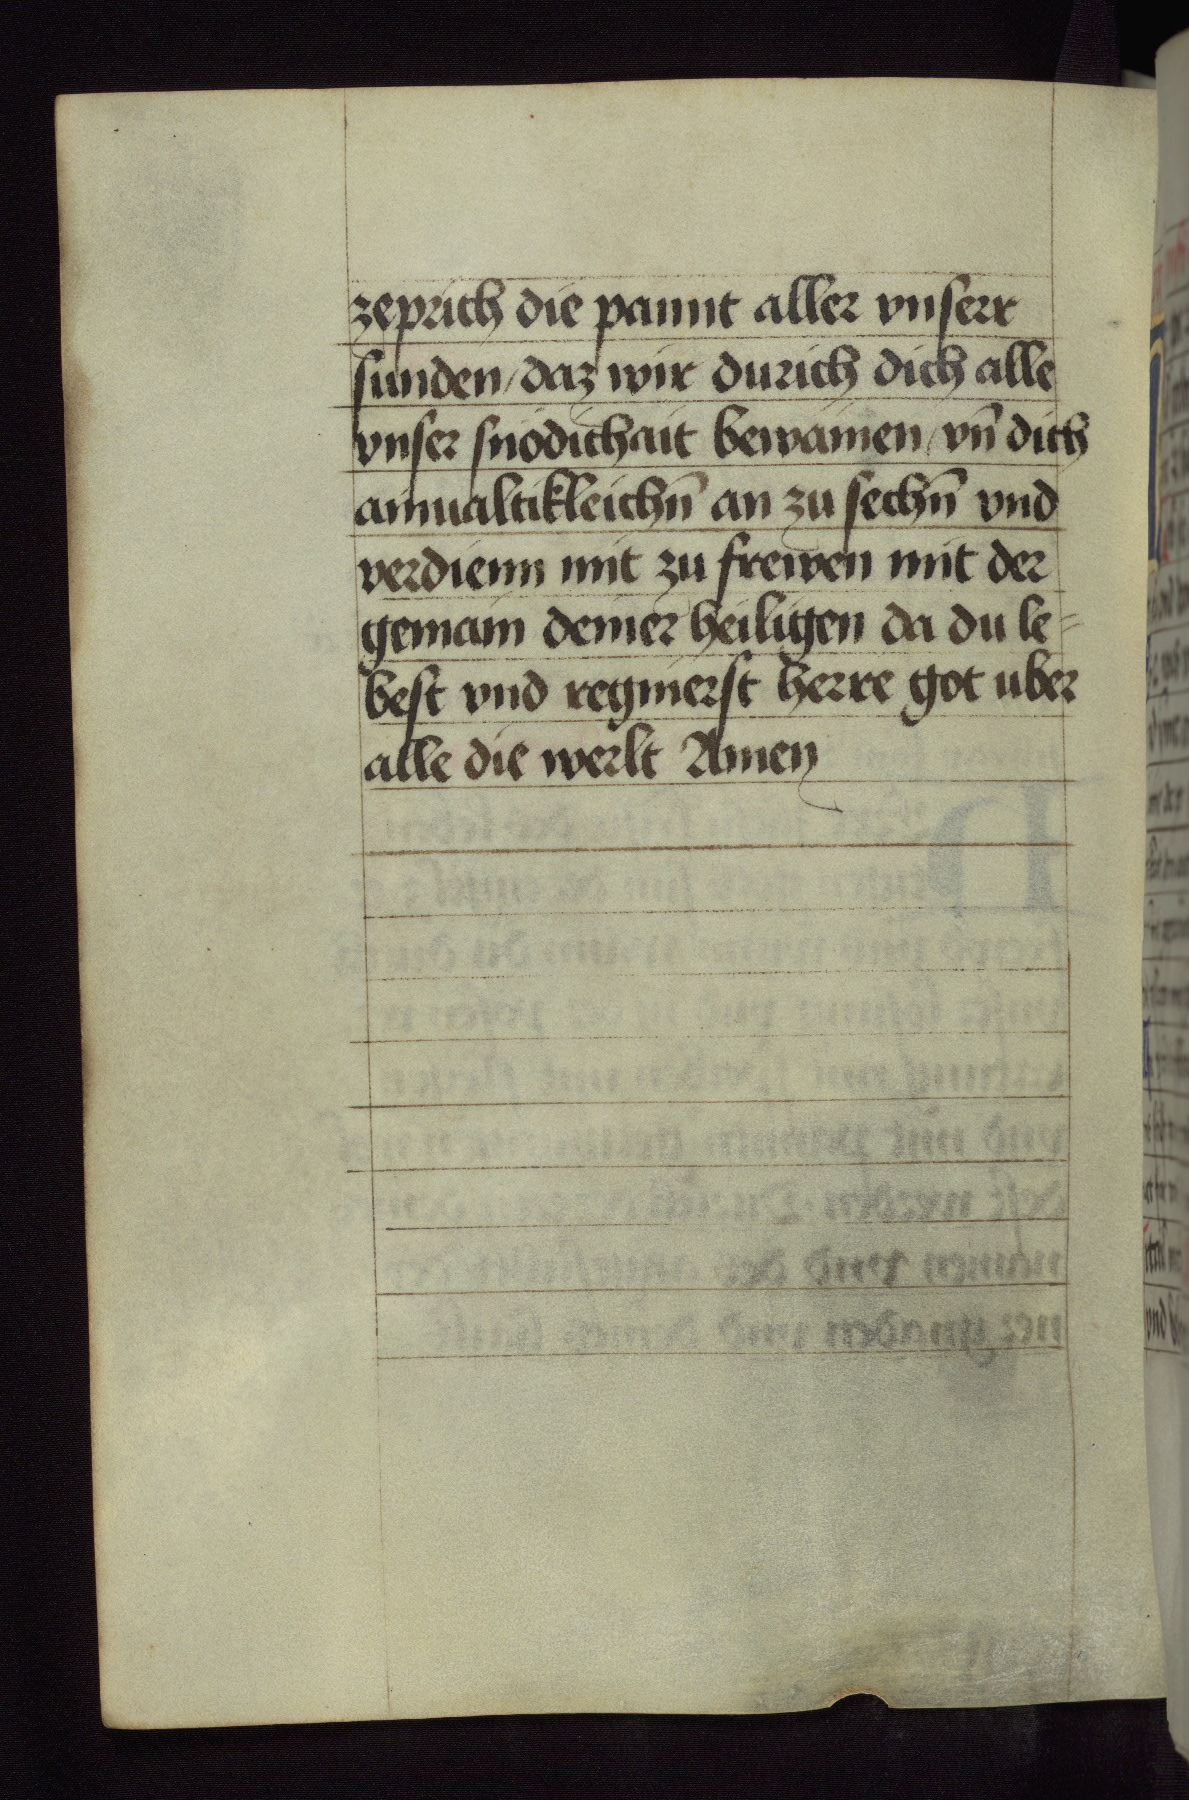 zeprich die pannt aller vnserr
sunden / daz wir durich dich alle
vnser snödichait bewainen / vn̄ dich
ainualtikleichn̄ an zu sechn̄ vnd
verdienn mit zu frewen mit der
gemain deiner heiligen da du le=
best vnd regnierst herre got uber
alle die werlt Amen